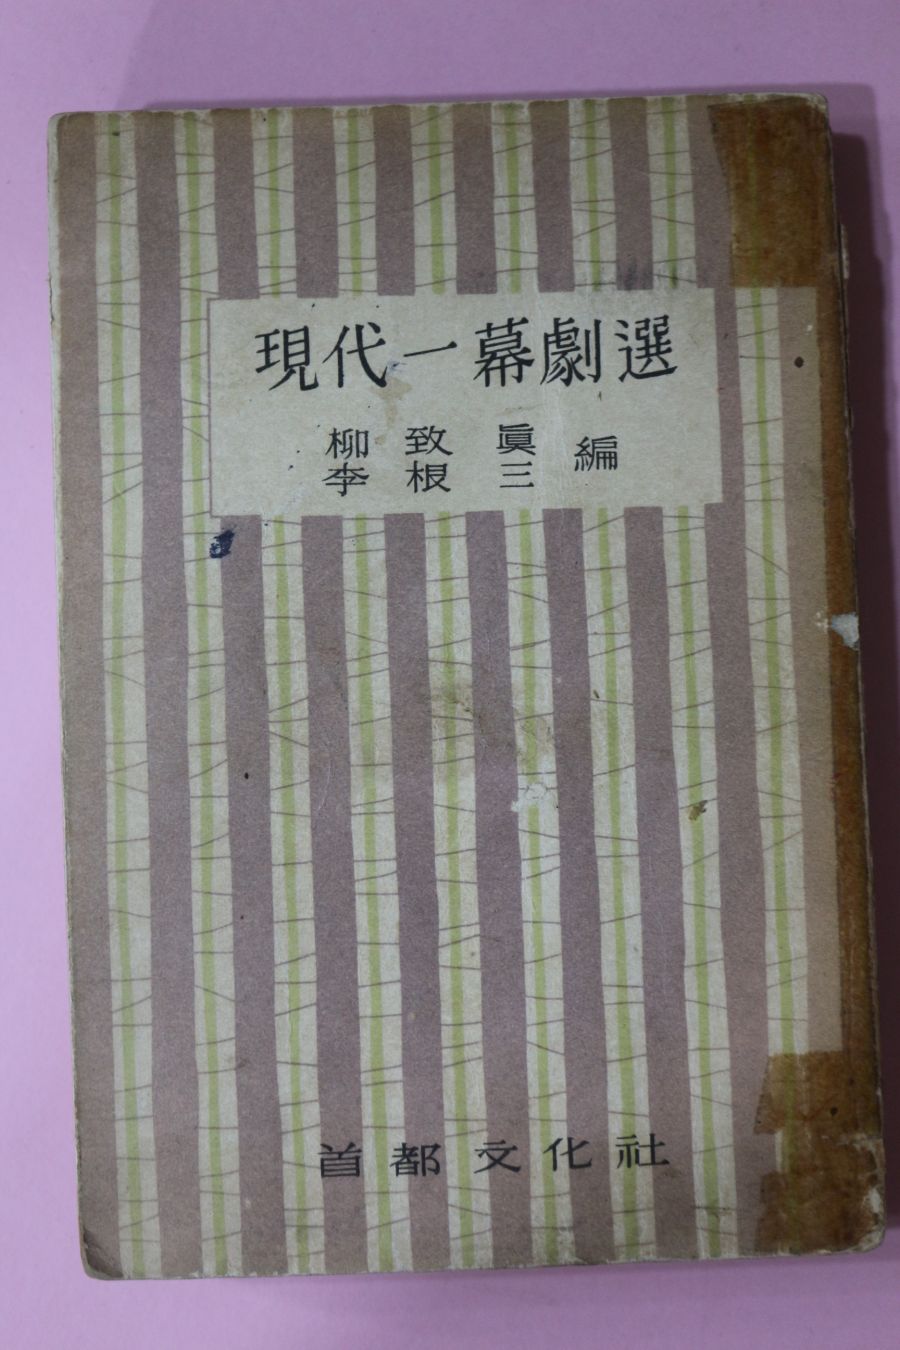 現代一幕劇選
柳致眞 編
李根三
首都文化社